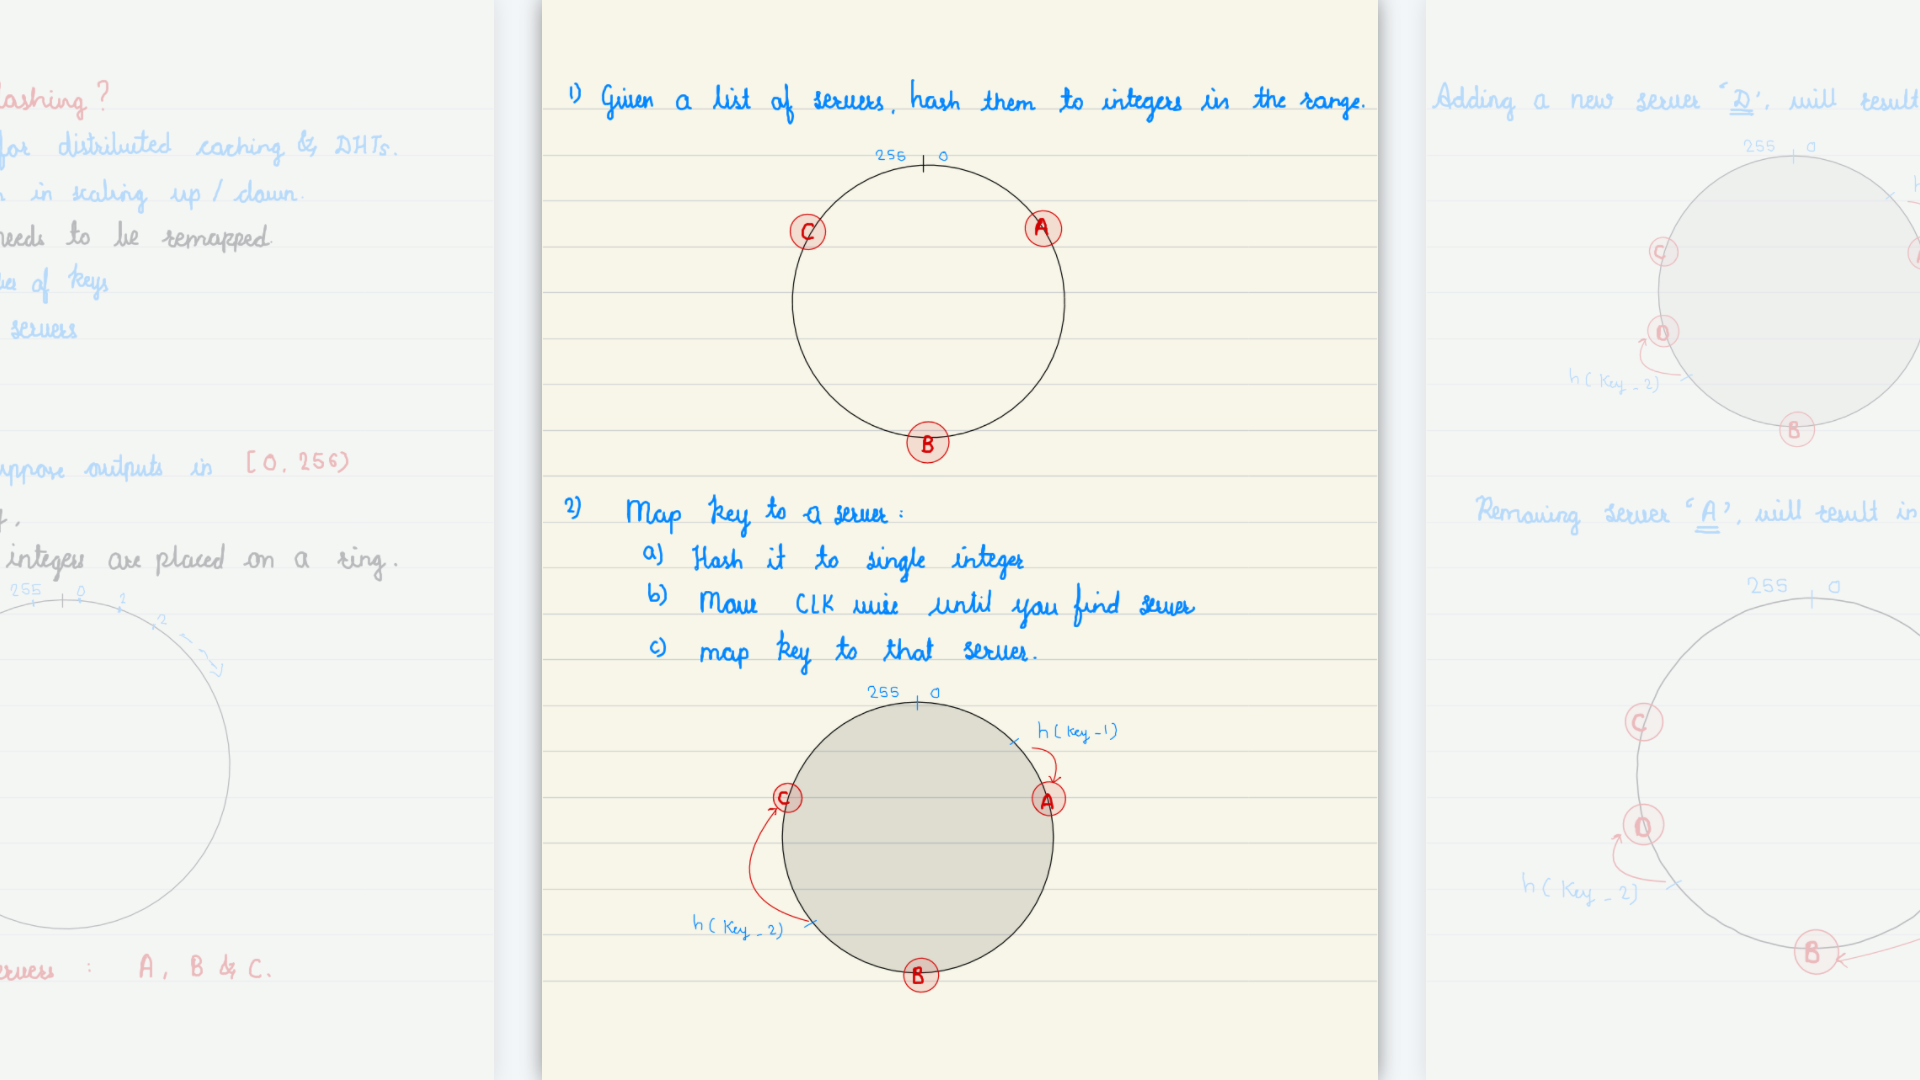 lashing ?
for distributed caching & DHTs.
in scaling up / down.
needs to be remapped
of keys
servers
uppose outputs in [0, 256)
integers are placed on a ring.
255 0 1 2
ervers : A, B & C.
1) Given a list of servers, hash them to integers in the range.
256 0
C A
B
2) Map key to a server :
a) Hash it to single integer
b) Move CLK wise until you find server
c) map key to that server.
255 0
h( Key -1)
C A
h( Key - 2)
B
Adding a new server 'D', will result
255 0
C
D
h( Key - 2)
B
Removing server 'A', will result in
255 0
C
D
h( Key - 2)
B